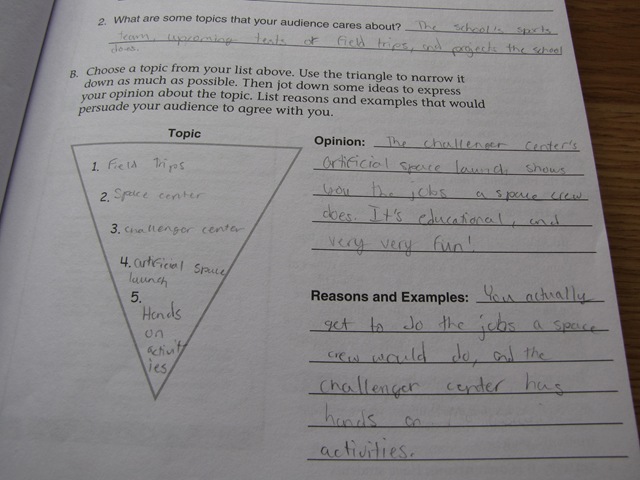 2. What are some topics that your audience cares about? The school's sports
team, upcoming tests or field trips, and projects the school
does.
B. Choose a topic from your list above. Use the triangle to narrow it
down as much as possible. Then jot down some ideas to express
your opinion about the topic. List reasons and examples that would
persuade your audience to agree with you.
Topic
1. Field Trips
2. Space center
3. challenger center
4. artificial space
launch
5.
Hands
on
activit
ies
Opinion: The challenger center's
artificial space launch shows
you the jobs a space crew
does. It's educational, and
very very fun!
Reasons and Examples: You actually
get to do the jobs a space
crew would do, and the
challenger center has
hands on
activities.